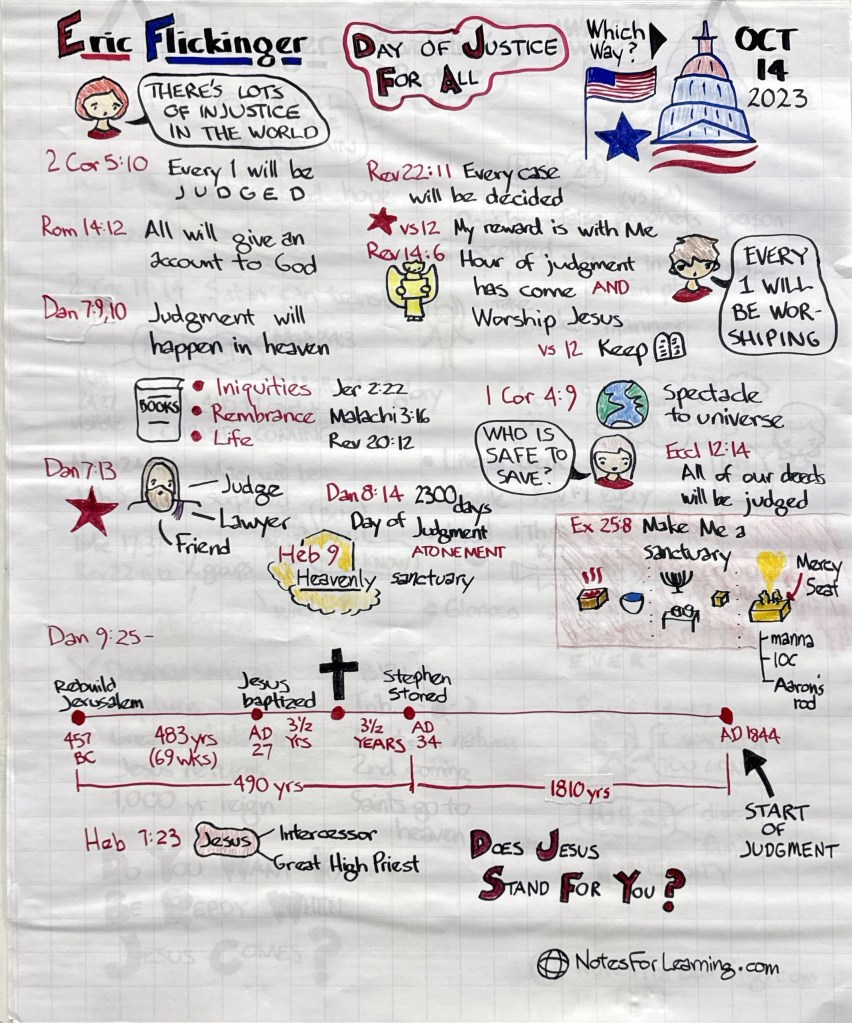 Eric Flickinger
DAY OF JUSTICE
FOR ALL
Which
Way?
OCT
14
2023
THERE'S LOTS
OF INJUSTICE
IN THE WORLD
2 Cor 5:10 Every 1 will be
JUDGED
Rom 14:12 All will give an
account to God
Dan 7:9,10 Judgment will
happen in heaven
Rev 22:11 Every case
will be decided
vs 12 My reward is with Me
Rev 14:6 Hour of judgment
has come AND
Worship Jesus
vs 12 Keep
EVERY
1 WILL
BE WOR-
SHIPING
BOOKS
• Iniquities Jer 2:22
• Rembrance Malachi 3:16
• Life Rev 20:12
1 Cor 4:9 Spectacle
to universe
WHO IS
SAFE TO
SAVE?
Eccl 12:14
All of our deeds
will be judged
Dan 7:13
Judge
Lawyer
Friend
Dan 8:14 2300 days
Day of Judgment
ATONEMENT
Heb 9
Heavenly sanctuary
Ex 25:8 Make Me a
sanctuary
Mercy
Seat
manna
10C
Aaron's
rod
Dan 9:25-
Rebuild
Jerusalem
Jesus
baptized
Stephen
Stoned
457
BC
483 yrs
(69 wks)
AD
27
3½
YRS
3½
YEARS
AD
34
AD 1844
490 yrs
1810 yrs
START
OF
JUDGMENT
Heb 7:23 Jesus
Intercessor
Great High Priest
DOES JESUS
STAND FOR YOU?
NotesForLearning.com